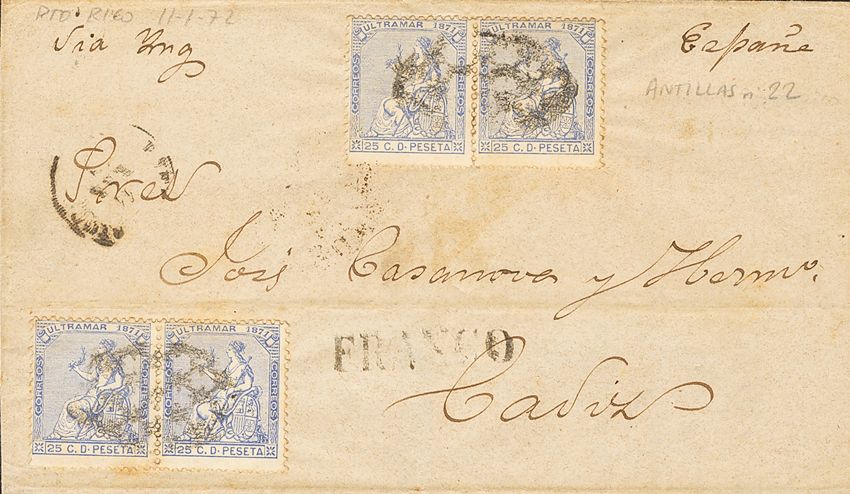 PTO RICO 11-1-72
Via Ing
España
ANTILLAS nº 22
ULTRAMAR 1871
CORREOS
CORREOS
25 C. D. PESETA
ULTRAMAR 1871
CORREOS
CORREOS
25 C. D. PESETA
José Casanova y Hermº.
FRANCO
Cadiz
ULTRAMAR 1871
CORREOS
CORREOS
25 C. D. PESETA
ULTRAMAR 1871
CORREOS
CORREOS
25 C. D. PESETA